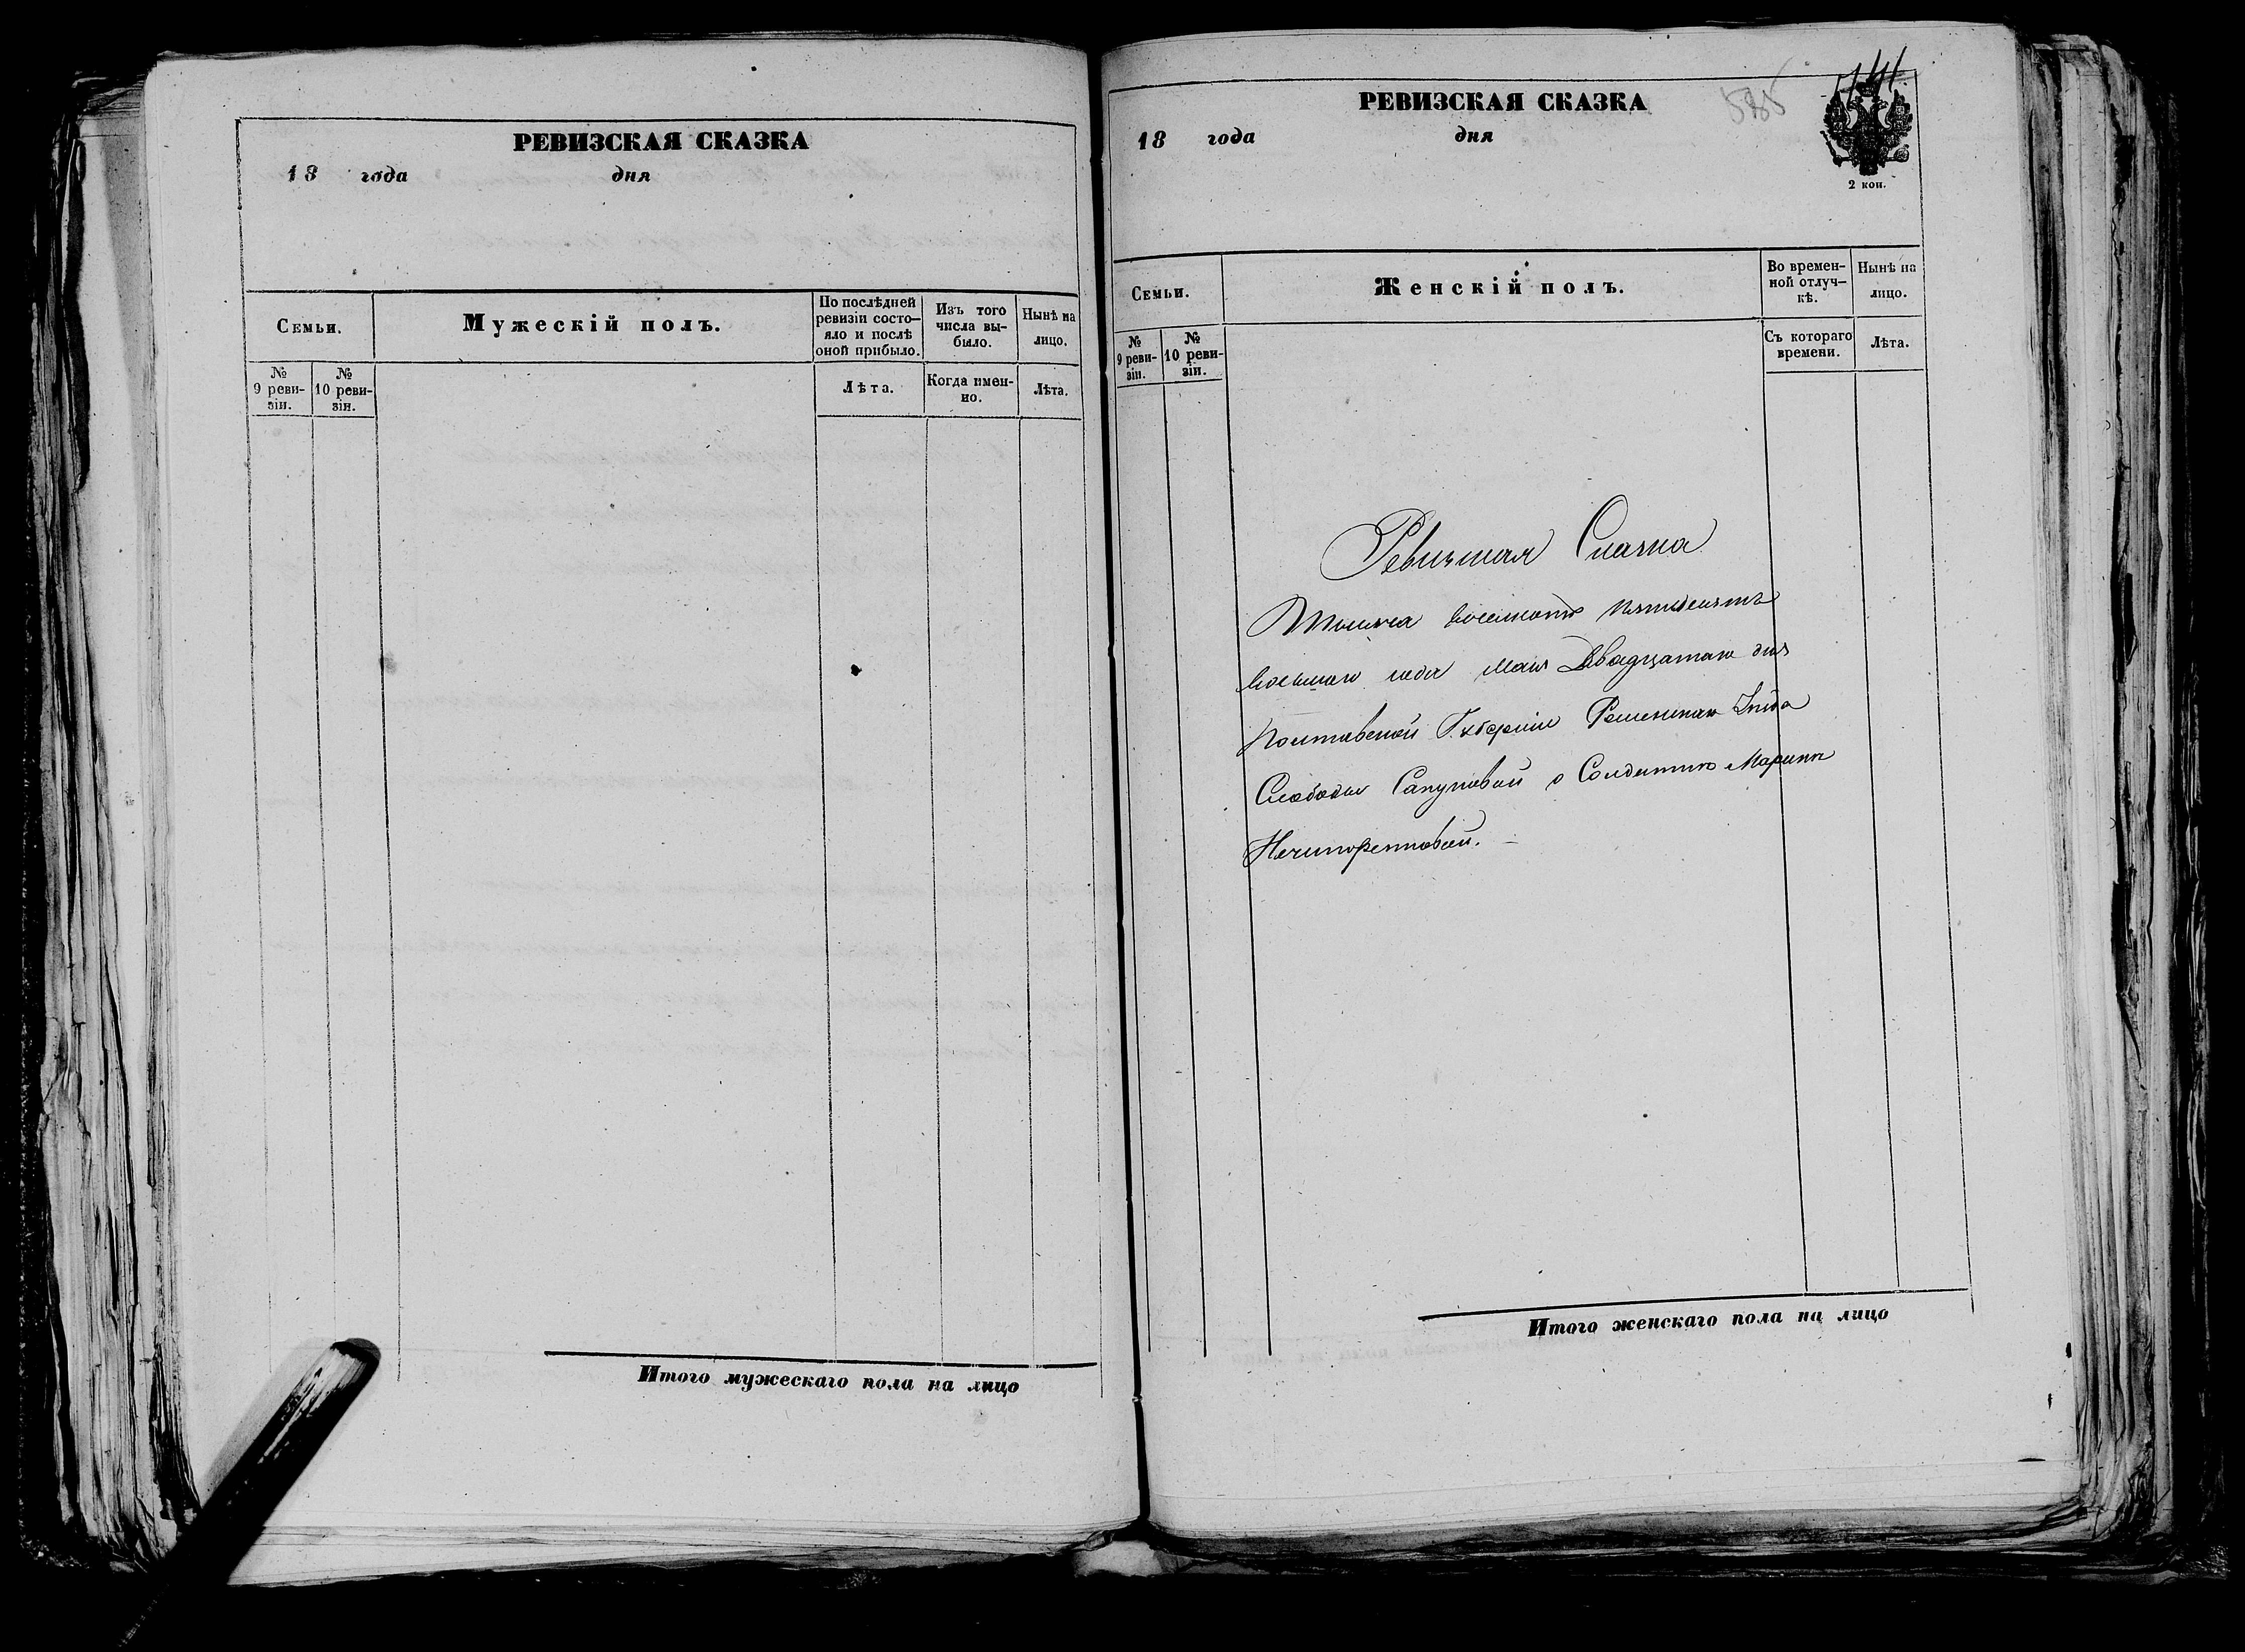 РЕВИЗСКАЯ СКАЗКА
18 года дня
Семьи.
Мужескій полъ.
По послѣдней ревизіи состо-
яло и послѣ
оной прибыло.
Изъ того
числа вы-
было.
Нынѣ на
лицо.
№
9 реви-
зіи.
№
10 реви-
зіи.
Лѣта.
Когда имен-
но.
Лѣта.
Итого мужескаго пола на лицо
РЕВИЗСКАЯ СКАЗКА
585
18 года дня
2 коп.
Семьи.
Женскій полъ.
Во времен-
ной отлуч-
кѣ.
Нынѣ на
лицо.
№
9 реви-
зіи.
№
10 реви-
зіи.
Съ котораго
времени.
Лѣта.
Ревизкая Сказка
Тысяча восемсотъ пятдесятъ
восьмаго года мая Двадцатаго дня
Полтавской Губерніи Роменскаго Уѣзда
Слободы Сакуновой о Солдаткѣ Маринѣ
Нечипоренковой.
Итого женскаго пола на лицо